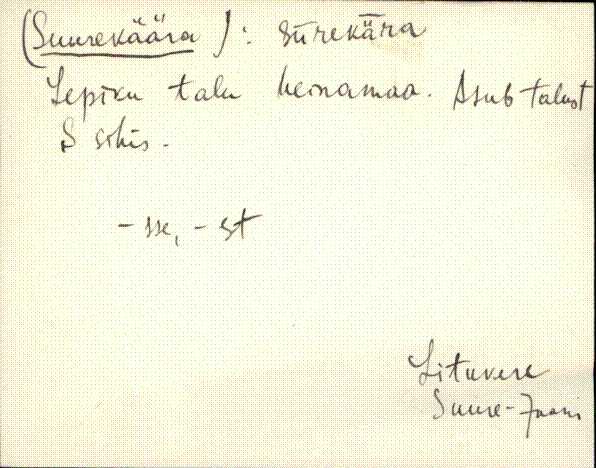 (Suurekäära): sūrekǟra
Lepiku talu heinamaa. Asub talust
S sihis.
-sse, -st
Lituvere
Suure-Jaani